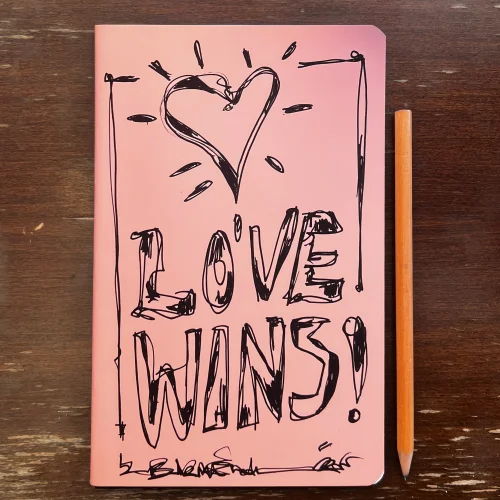 LOVE
WINS!